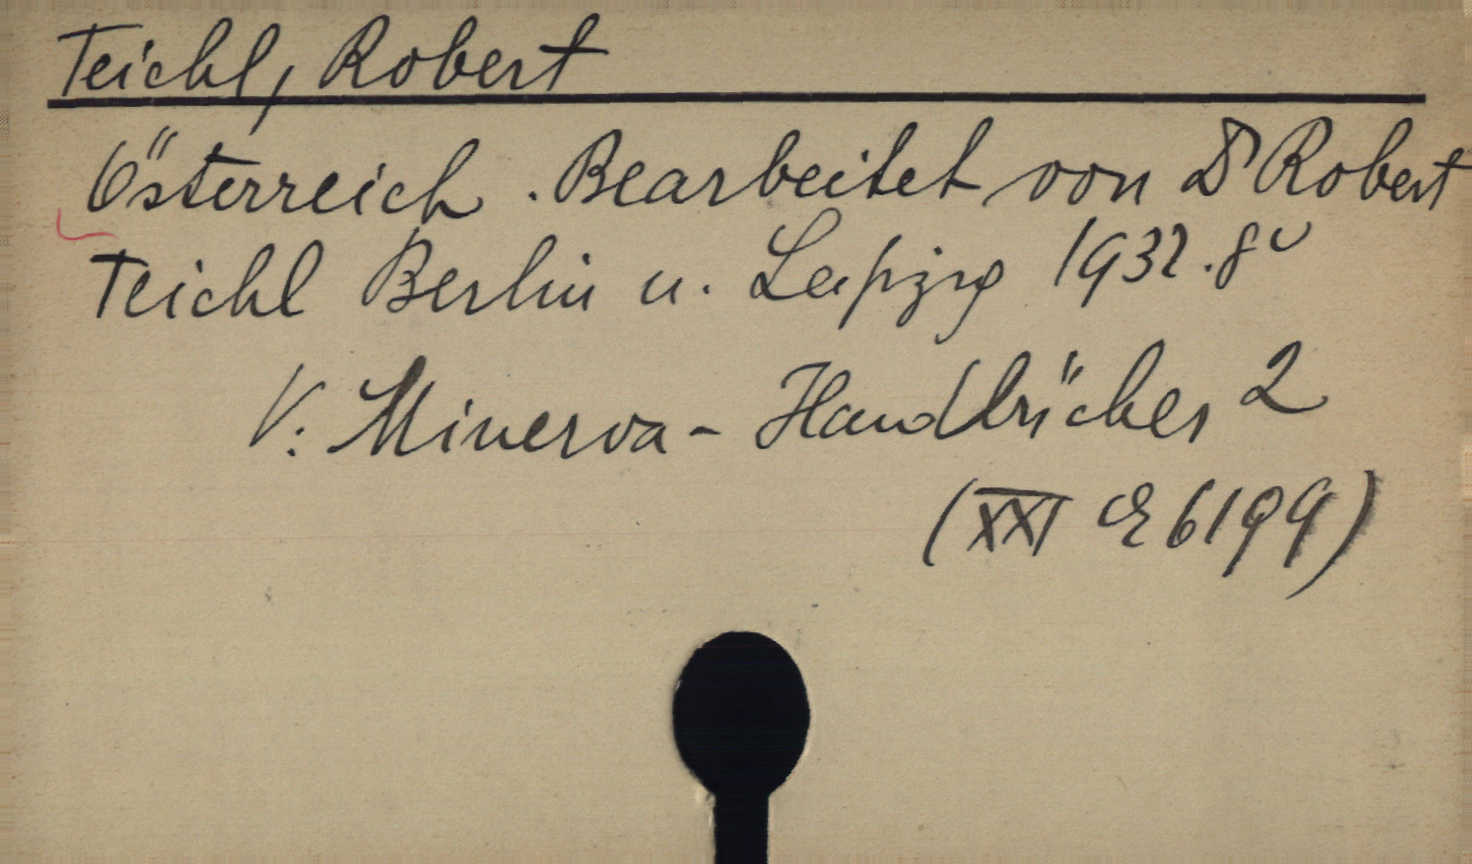 Teichl, Robert
Österreich. Bearbeitet von Dr Robert
Teichl Berlin u. Leipzig 1932. 8º
V. Minerva-Handbücher 2
(XXI 6199)